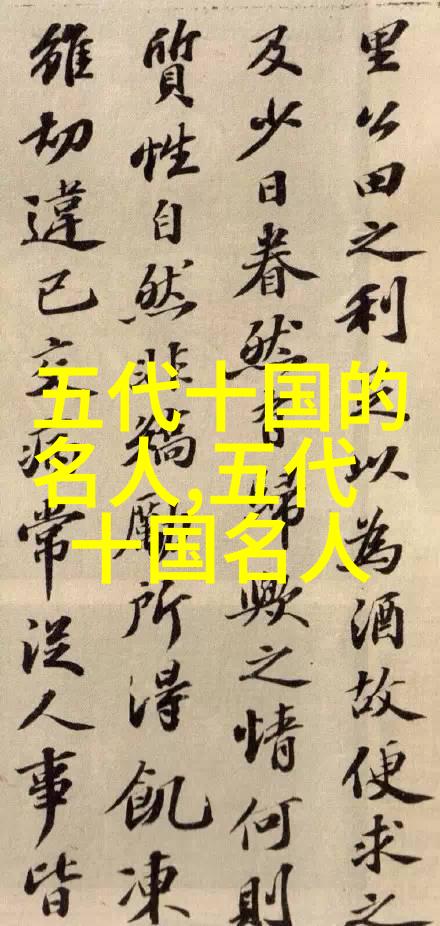 里公田之利足以為酒故便求之
及少日眷然有歸歟之情何則
質性自然非矯勵所得飢凍
雖切違已交病常從人事皆
五代十国的
名人,五代
十国名人